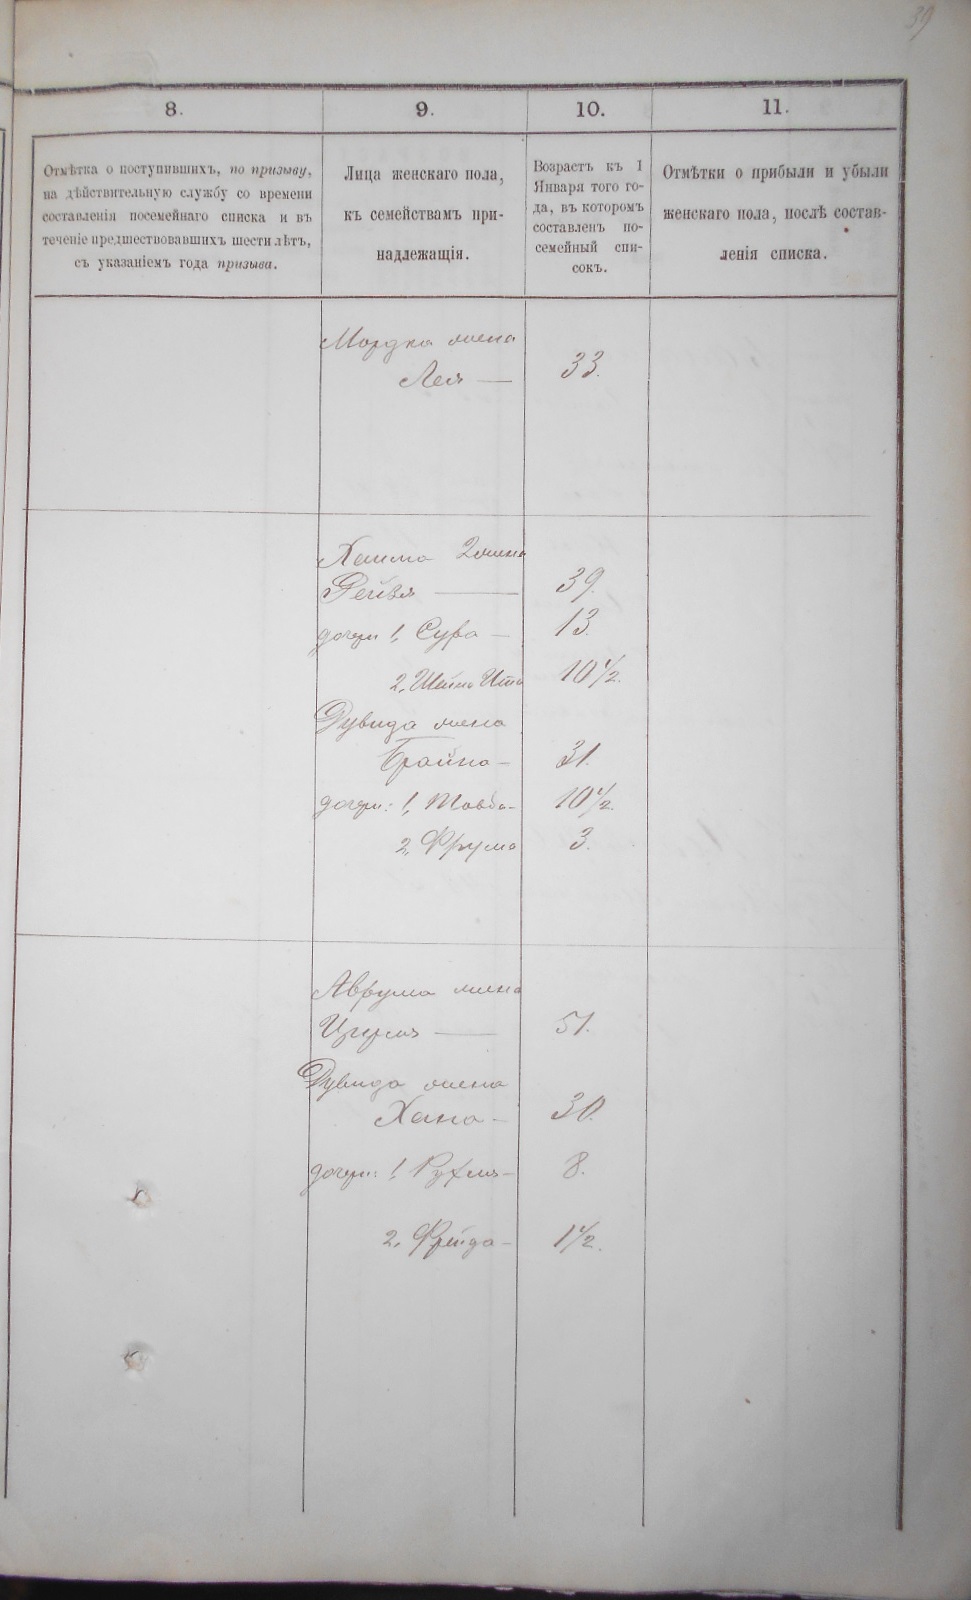 39
8.
9.
10.
11.
Отмѣтка о поступившихъ, по призыву,
на дѣйствительную службу со времени
составленія посемейнаго списка и въ
теченіе предшествовавшихъ шести лѣтъ,
съ указаніемъ года призыва.
Лица женскаго пола,
къ семействамъ при-
надлежащія.
Возрастъ къ 1
Января того го-
да, въ которомъ
составленъ по-
семейный спи-
сокъ.
Отмѣтки о прибыли и убыли
женскаго пола, послѣ состав-
ленія списка.
Мордка жена
Лея — 33.
Хаима 2 жена
Рейзя — 39.
дочери 1, Сура — 13.
2, Шейна Ита 10 1/2.
Дувида жена
Брайна — 31.
дочери: 1, Товба — 10 1/2.
2, Фрума 3.
Аврума жена
Цирля — 51.
Дувида жена
Хана — 30.
дочери: 1, Рухля — 8.
2, Фрейда — 1 1/2.